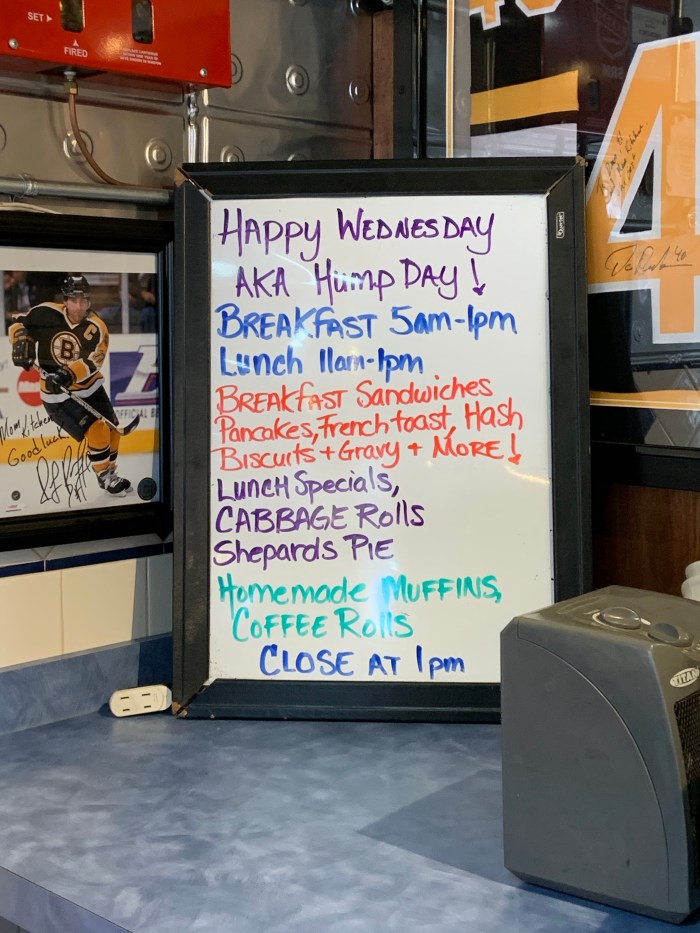 SET
FIRED
HAPPY WEDNESDAY
AKA HUMP DAY!
BREAKFAST 5am-1pm
Lunch 11am-1pm
BREAKfAST Sandwiches
Pancakes, French toast, Hash
Biscuits + Gravy + MORE!
LUNCH Specials,
CABBAGE Rolls
Shepards PIE
Homemade MUFFINS,
COFFEE Rolls
CLOSE AT 1pm
B
C
OFFICIAL
Mom Kitchen
Good luck
4
TITAN